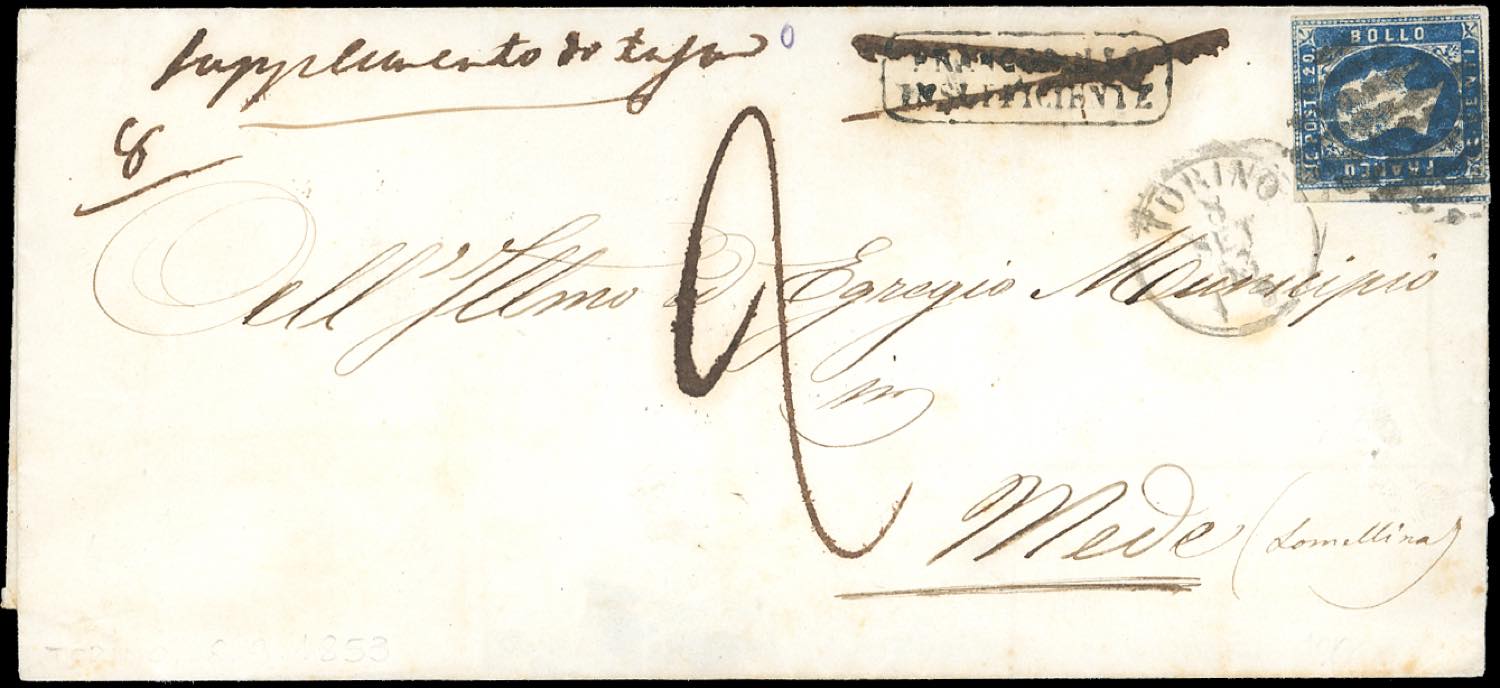 supplemento di tassa
8
FRANCOBOLLO
INSUFFICIENTE
BOLLO
C. POSTE 20.
FRANCO
TORINO
8
SET
53
2
All' Illmo ed Egregio Municipio
in
Mede (Lomellina)
1853